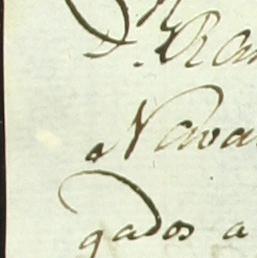 D. Ra
Nava
gados a